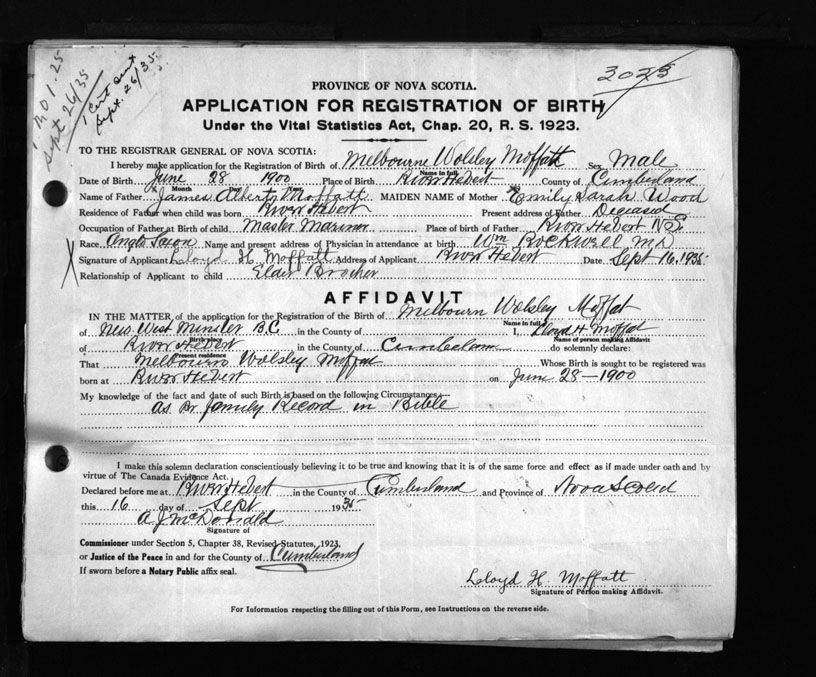 3025
Sept 26/35
1 Cert sent
Sept. 26/35
PROVINCE OF NOVA SCOTIA.
APPLICATION FOR REGISTRATION OF BIRTH
Under the Vital Statistics Act, Chap. 20, R. S. 1923.
TO THE REGISTRAR GENERAL OF NOVA SCOTIA:
I hereby make application for the Registration of Birth of Melbourne Wolsley Moffatt Sex Male
Name in full
Date of Birth June 28 1900 Place of Birth River Hebert County of Cumberland
Month Day Year
Name of Father James Albert Moffatt MAIDEN NAME of Mother Emily Sarah Wood
Residence of Father when child was born River Hebert Present address of Father Deceased
Occupation of Father at Birth of child Master Mariner Place of birth of Father River Hebert N.S.
Race Anglo Saxon Name and present address of Physician in attendance at birth Wm Rockwell M.D
Signature of Applicant Lloyd H Moffatt Address of Applicant River Hebert Date Sept 16, 1935
Relationship of Applicant to child Elder Brother
AFFIDAVIT
IN THE MATTER of the application for the Registration of the Birth of Melbourn Wolsley Moffat
Name in full
of New West Minster B.C in the County of I, Lloyd H Moffat
Birth place Name of person making Affidavit
of River Hebert in the County of Cumberland do solemnly declare:
Present residence
That Melbourn Wolsley Moffat Whose Birth is sought to be registered was
born at River Hebert on June 28 - 1900
My knowledge of the fact and date of such Birth is based on the following Circumstances
As Pr Family Record in Bible
I make this solemn declaration conscientiously believing it to be true and knowing that it is of the same force and effect as if made under oath and by
virtue of The Canada Evidence Act.
Declared before me at River Hebert in the County of Cumberland and Province of Nova Scotia
this 16 day of Sept 1935
A J McDonald
Signature of
Commissioner under Section 5, Chapter 38, Revised Statutes, 1923,
or Justice of the Peace in and for the County of Cumberland
If sworn before a Notary Public affix seal.
Lloyd H Moffatt
Signature of Person making Affidavit.
For Information respecting the filling out of this Form, see Instructions on the reverse side.